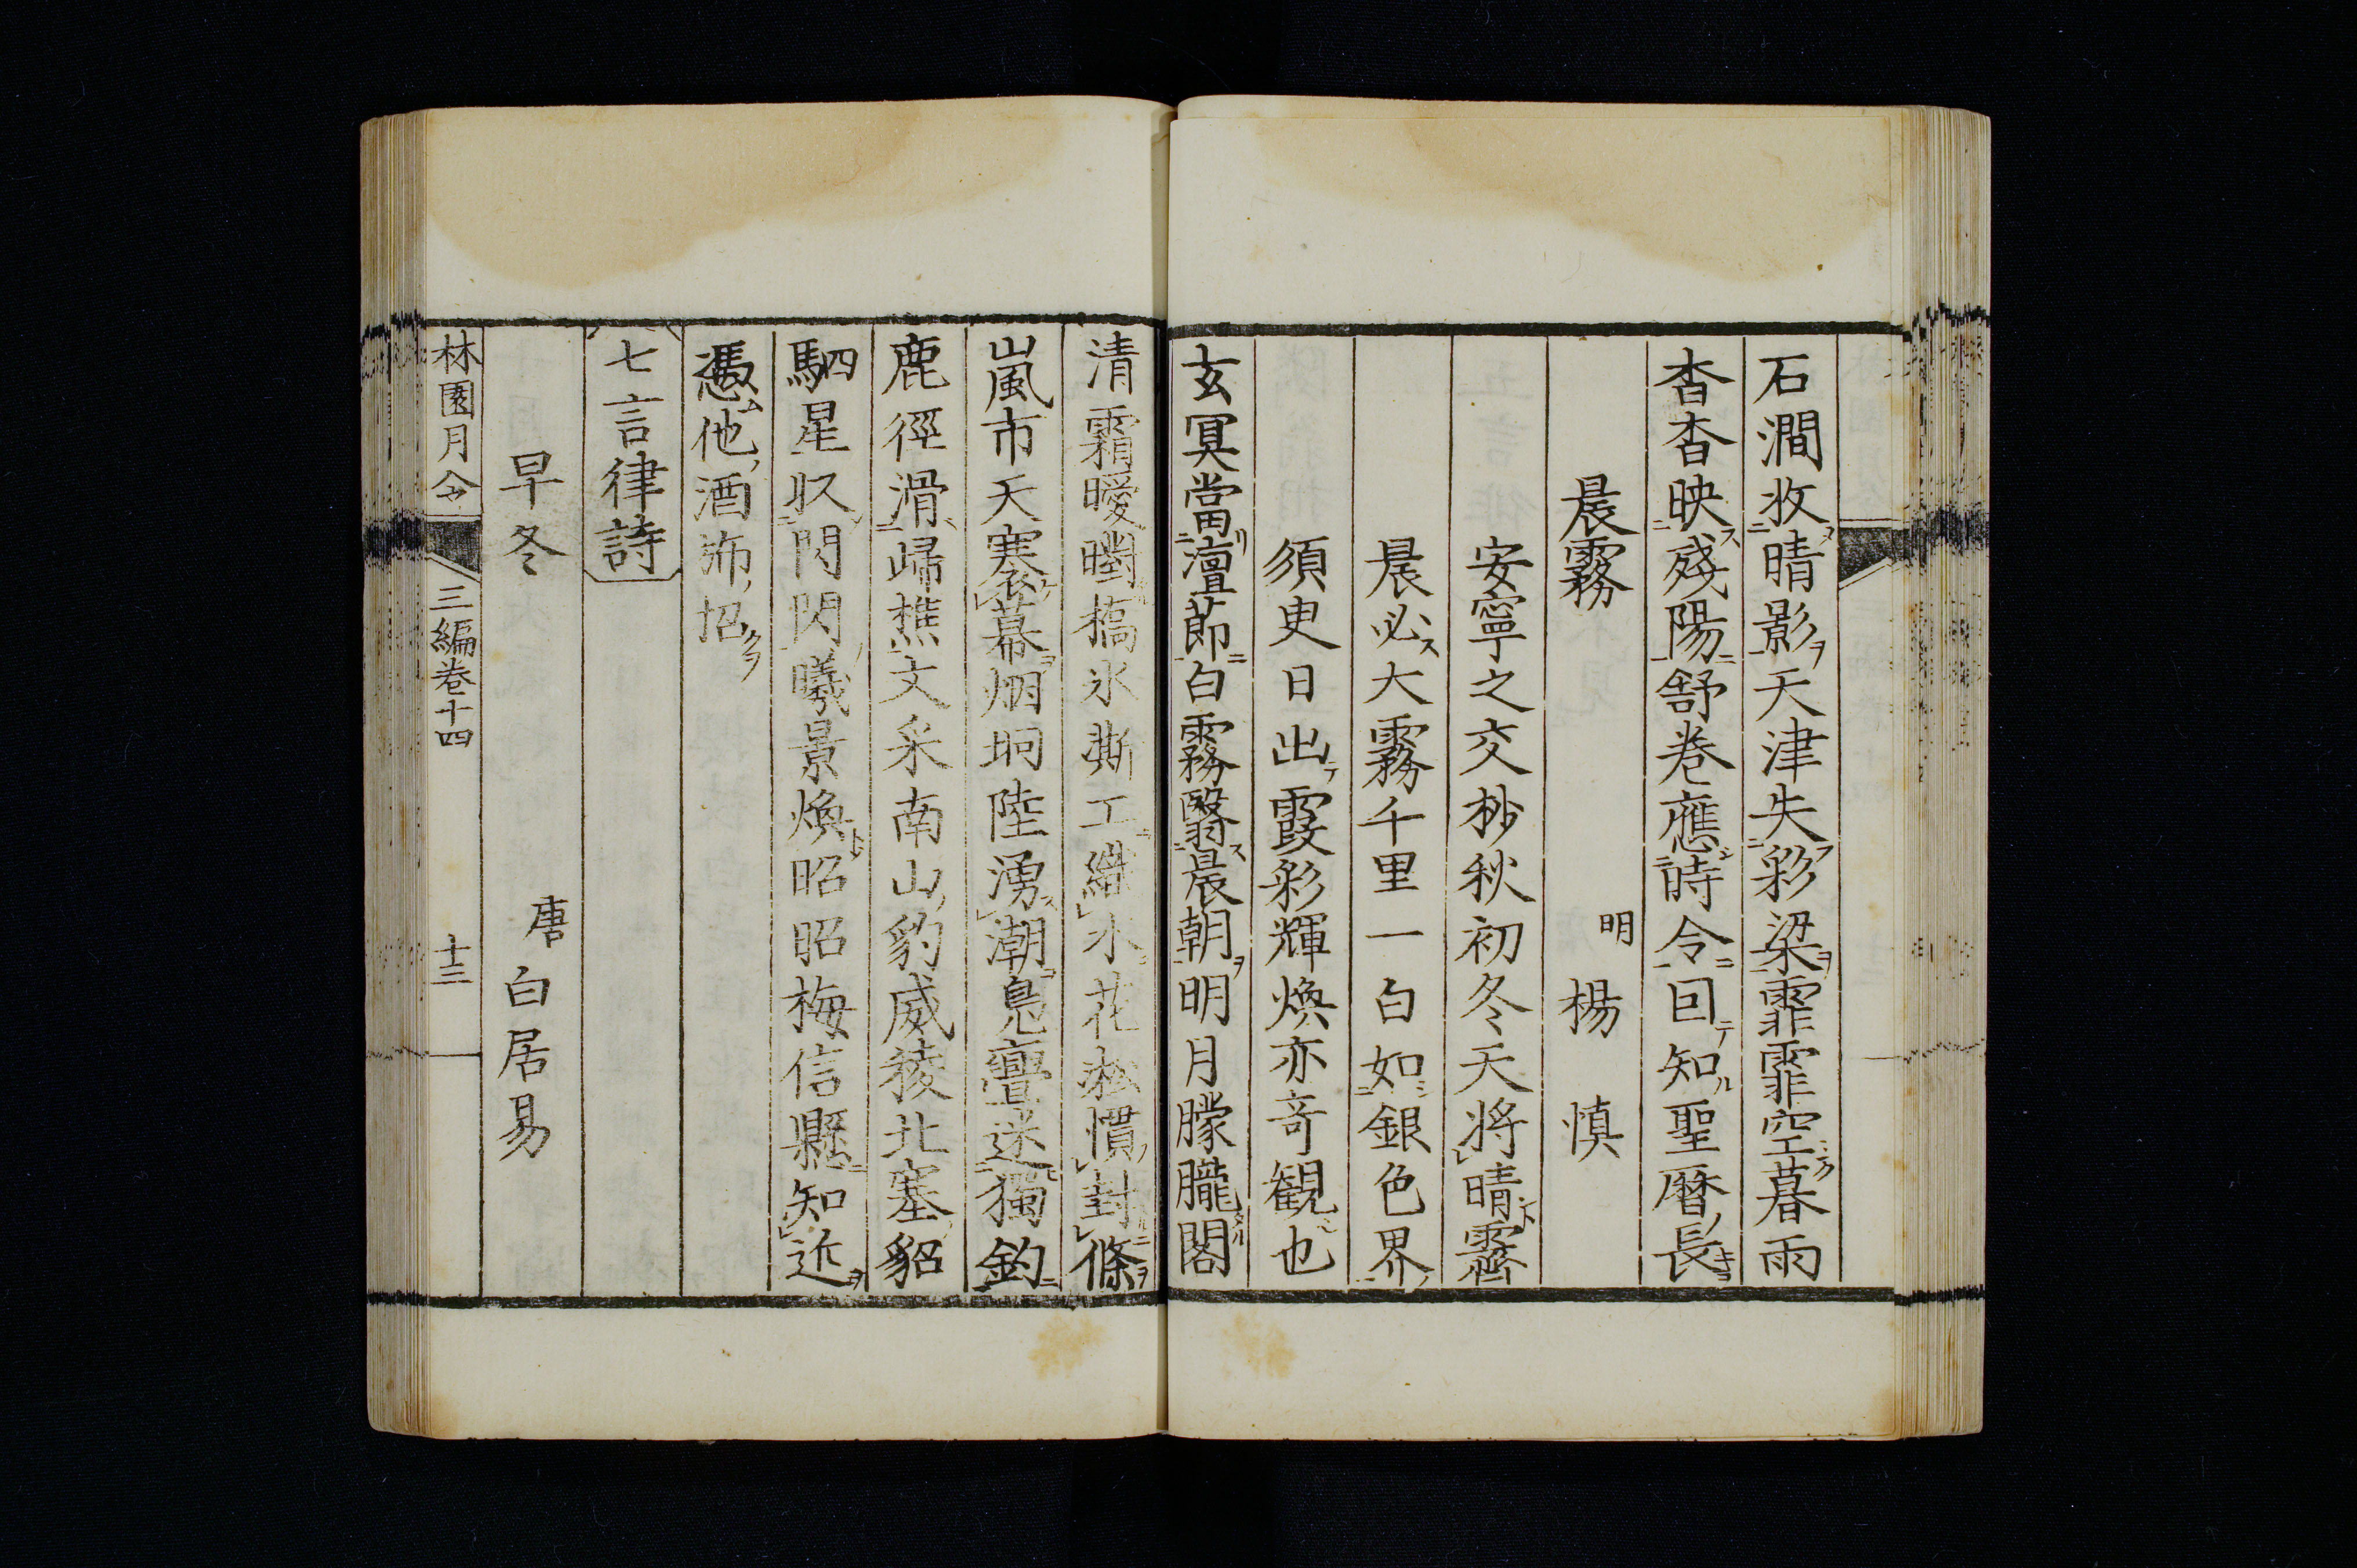 石澗收晴影天津失彩梁霏霏空暮雨
杳杳映殘陽舒卷應時令回知聖曆長
晨霧
明 楊慎
安寧之交杪秋初冬天將晴霽
晨必大霧千里一白如銀色界
須臾日出霞彩輝煥亦奇観也
玄冥當澶節白霧翳晨朝明月朦朧閣
清霜曖曃橋氷澌工織水花淞慣封條
嵐市天褰幕烟坰陸湧潮鳧亹迷獨釣
鹿徑滑歸樵文采南山豹威稜北塞貂
駟星収閃閃曦景煥昭昭梅信縣知近
憑他酒斾招
七言律詩
早冬
唐 白居易
林園月令 三編卷十四 十三